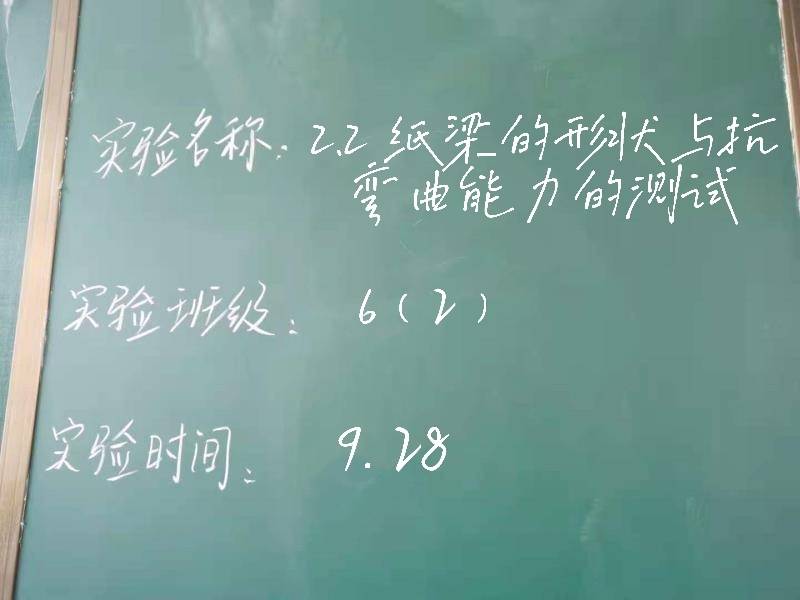 实验名称：2.2 纸梁的形状与抗
弯曲能力的测试
实验班级：6（2）
实验时间：9.28